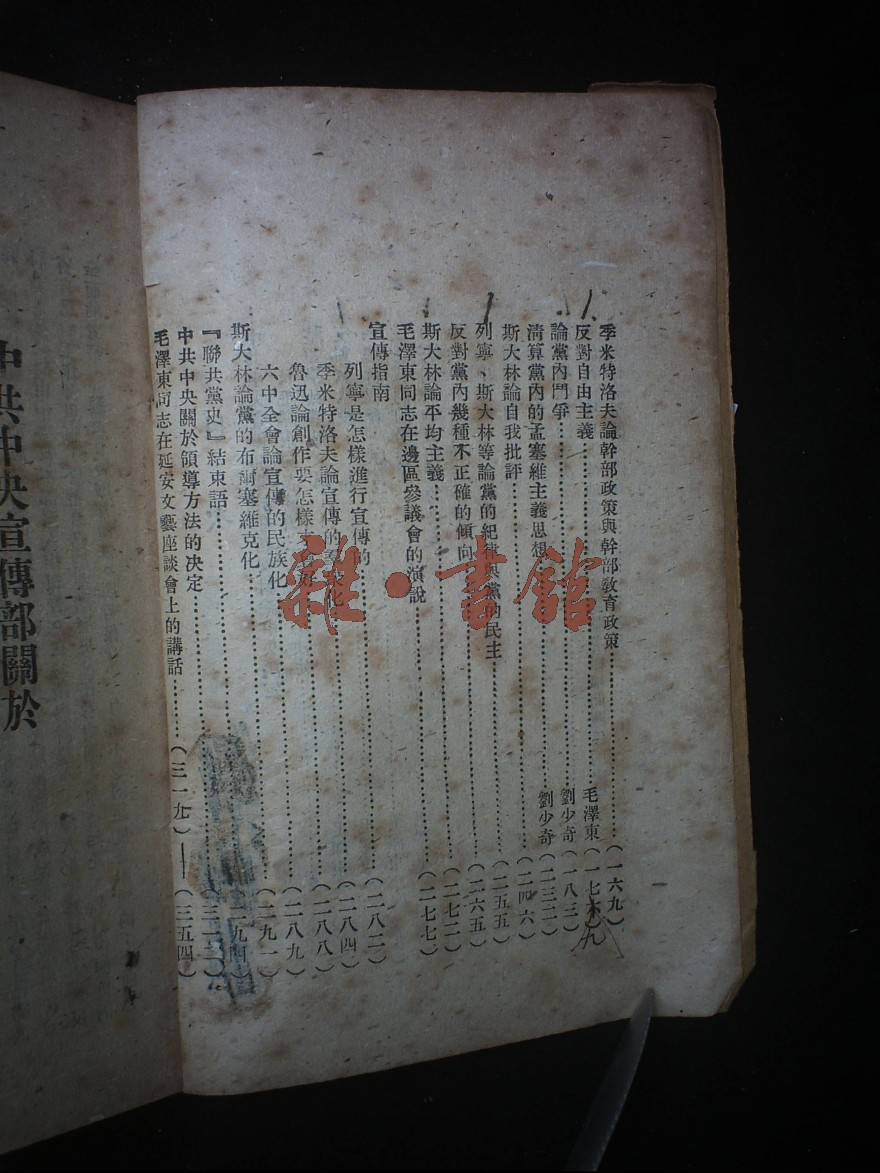 季米特洛夫論幹部政策與幹部敎育政策………（一六九）
反對自由主義………毛澤東（一七六）九
論黨內鬥爭………劉少奇（一八三）
淸算黨內的孟塞維主義思想………劉少奇（二三二）
斯大林論自我批評………（二四六）
列寧、斯大林等論黨的紀律與黨的民主………（二五五）
反對黨內幾種不正確的傾向………（二六五）
斯大林論平均主義………（二七二）
毛澤東同志在邊區參議會的演說………（二七七）
宣傳指南………（二八二）
列寧是怎樣進行宣傳的………（二八四）
季米特洛夫論宣傳的 化………（二八八）
魯迅論創作要怎樣………（二八九）
六中全會論宣傳的民族化………（二九一）
斯大林論黨的布爾塞維克化………（二九四）
『聯共黨史』結束語………（三一二）
中共中央關於領導方法的決定
毛澤東同志在延安文藝座談會上的講話………（三一九）——（三五四）
中共中央宣傳部關於
雜·書館